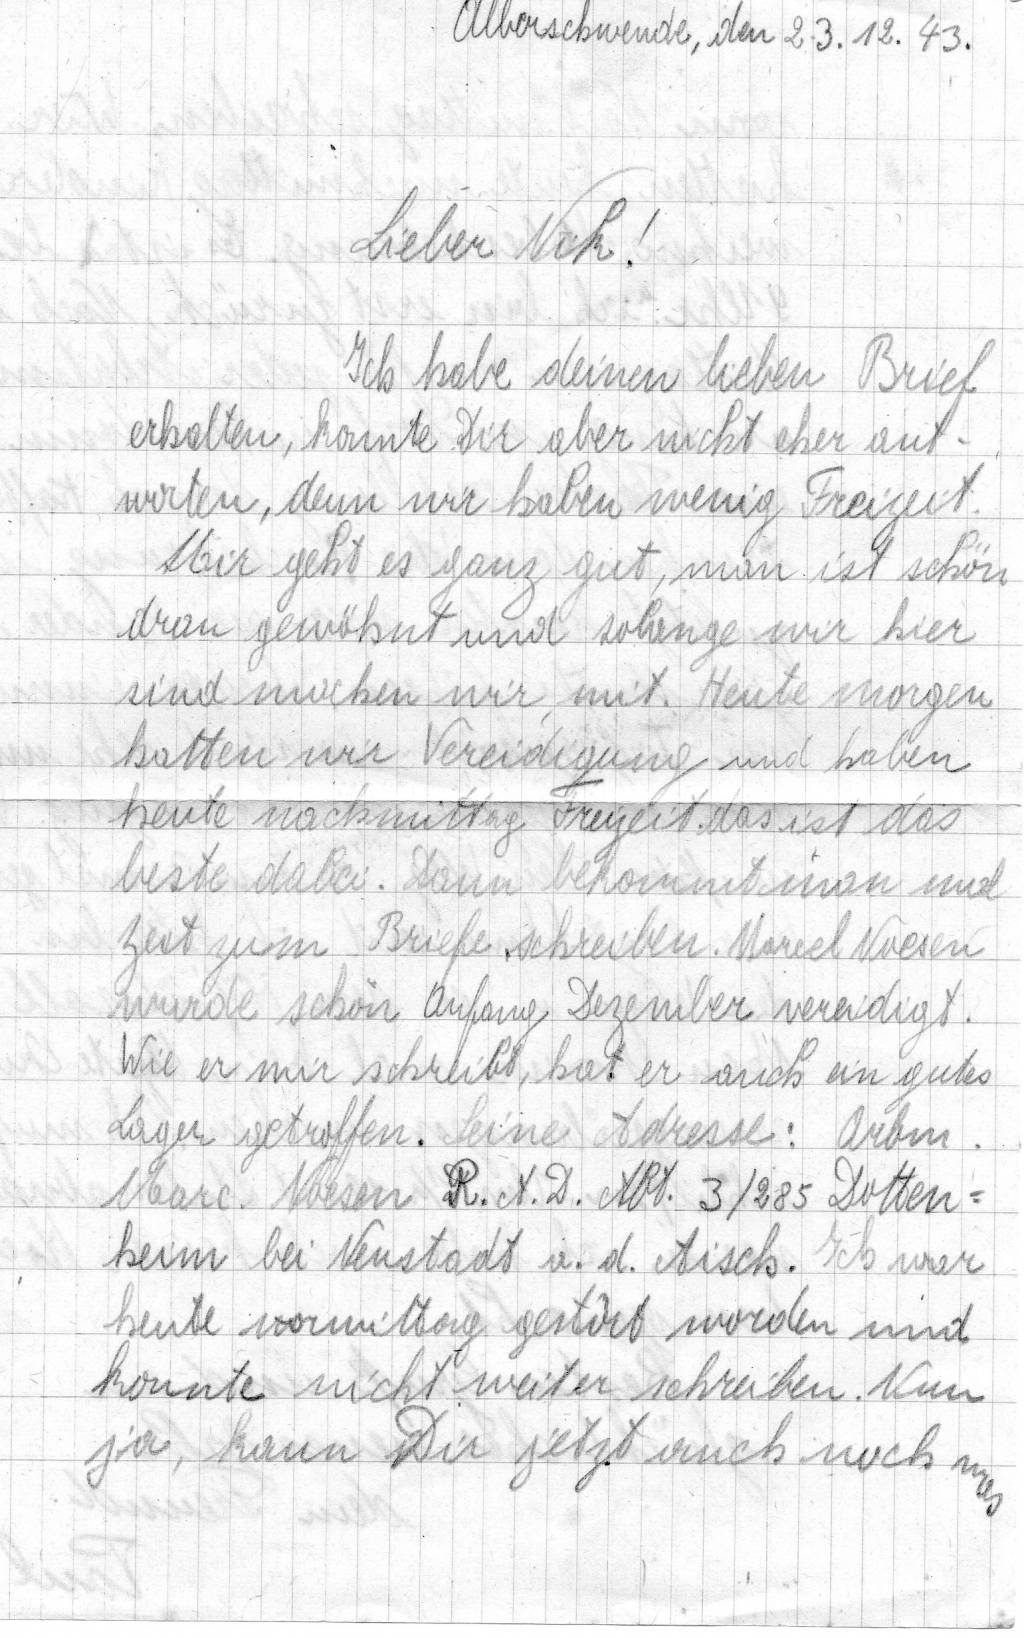 Alberschwende, den 23. 12. 43.
Lieber Nick!
Ich habe deinen lieben Brief
erhalten, konnte Dir aber nicht eher ant-
worten, denn wir haben wenig Freizeit.
Mir geht es ganz gut, man ist schön
dran gewöhnt und solange wir hier
sind machen wir mit. Heute morgen
hatten wir Vereidigung und haben
heute nachmittag Freizeit. das ist das
beste dabei. Dann bekommt man mal
Zeit zum Briefe schreiben. Marcel Noesen
wurde schön Anfang Dezember vereidigt.
Wie er mir schreibt, hat er auch ein gutes
Lager getroffen. Seine Adresse: Arbm.
Marc. Noesen R. A. D. Abt. 3/285 Dotten=
heim bei Neustadt a. d. Aisch. Ich war
heute vormittag gestört worden und
konnte nicht weiter schreiben. Nun
ja, kann Dir jetzt auch noch